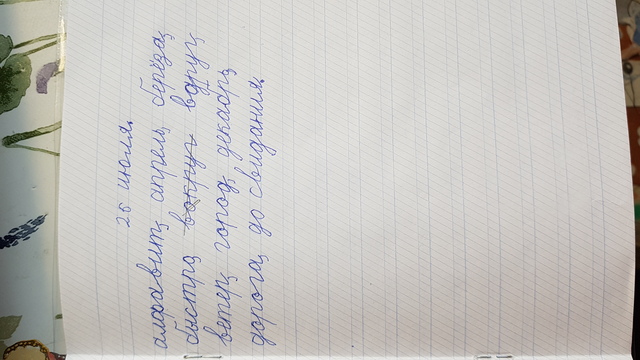 26 июля.
алфавит, апрель, берёза,
быстро, вокруг вдруг,
ветер, город, декабрь,
дорога, до свидания.